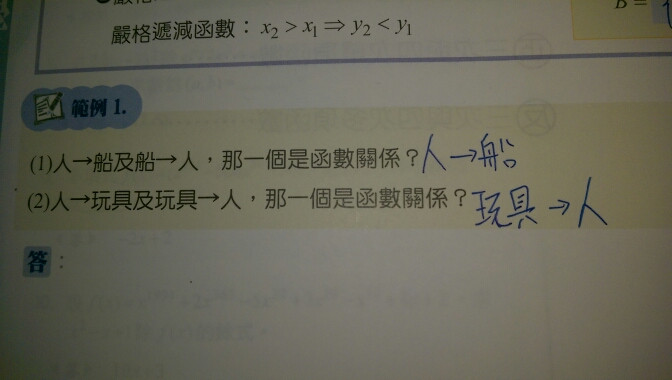 嚴格遞減函數：x₂ > x₁ ⇒ y₂ < y₁
B =
範例 1.
(1)人→船及船→人，那一個是函數關係？人→船
(2)人→玩具及玩具→人，那一個是函數關係？玩具→人
答：